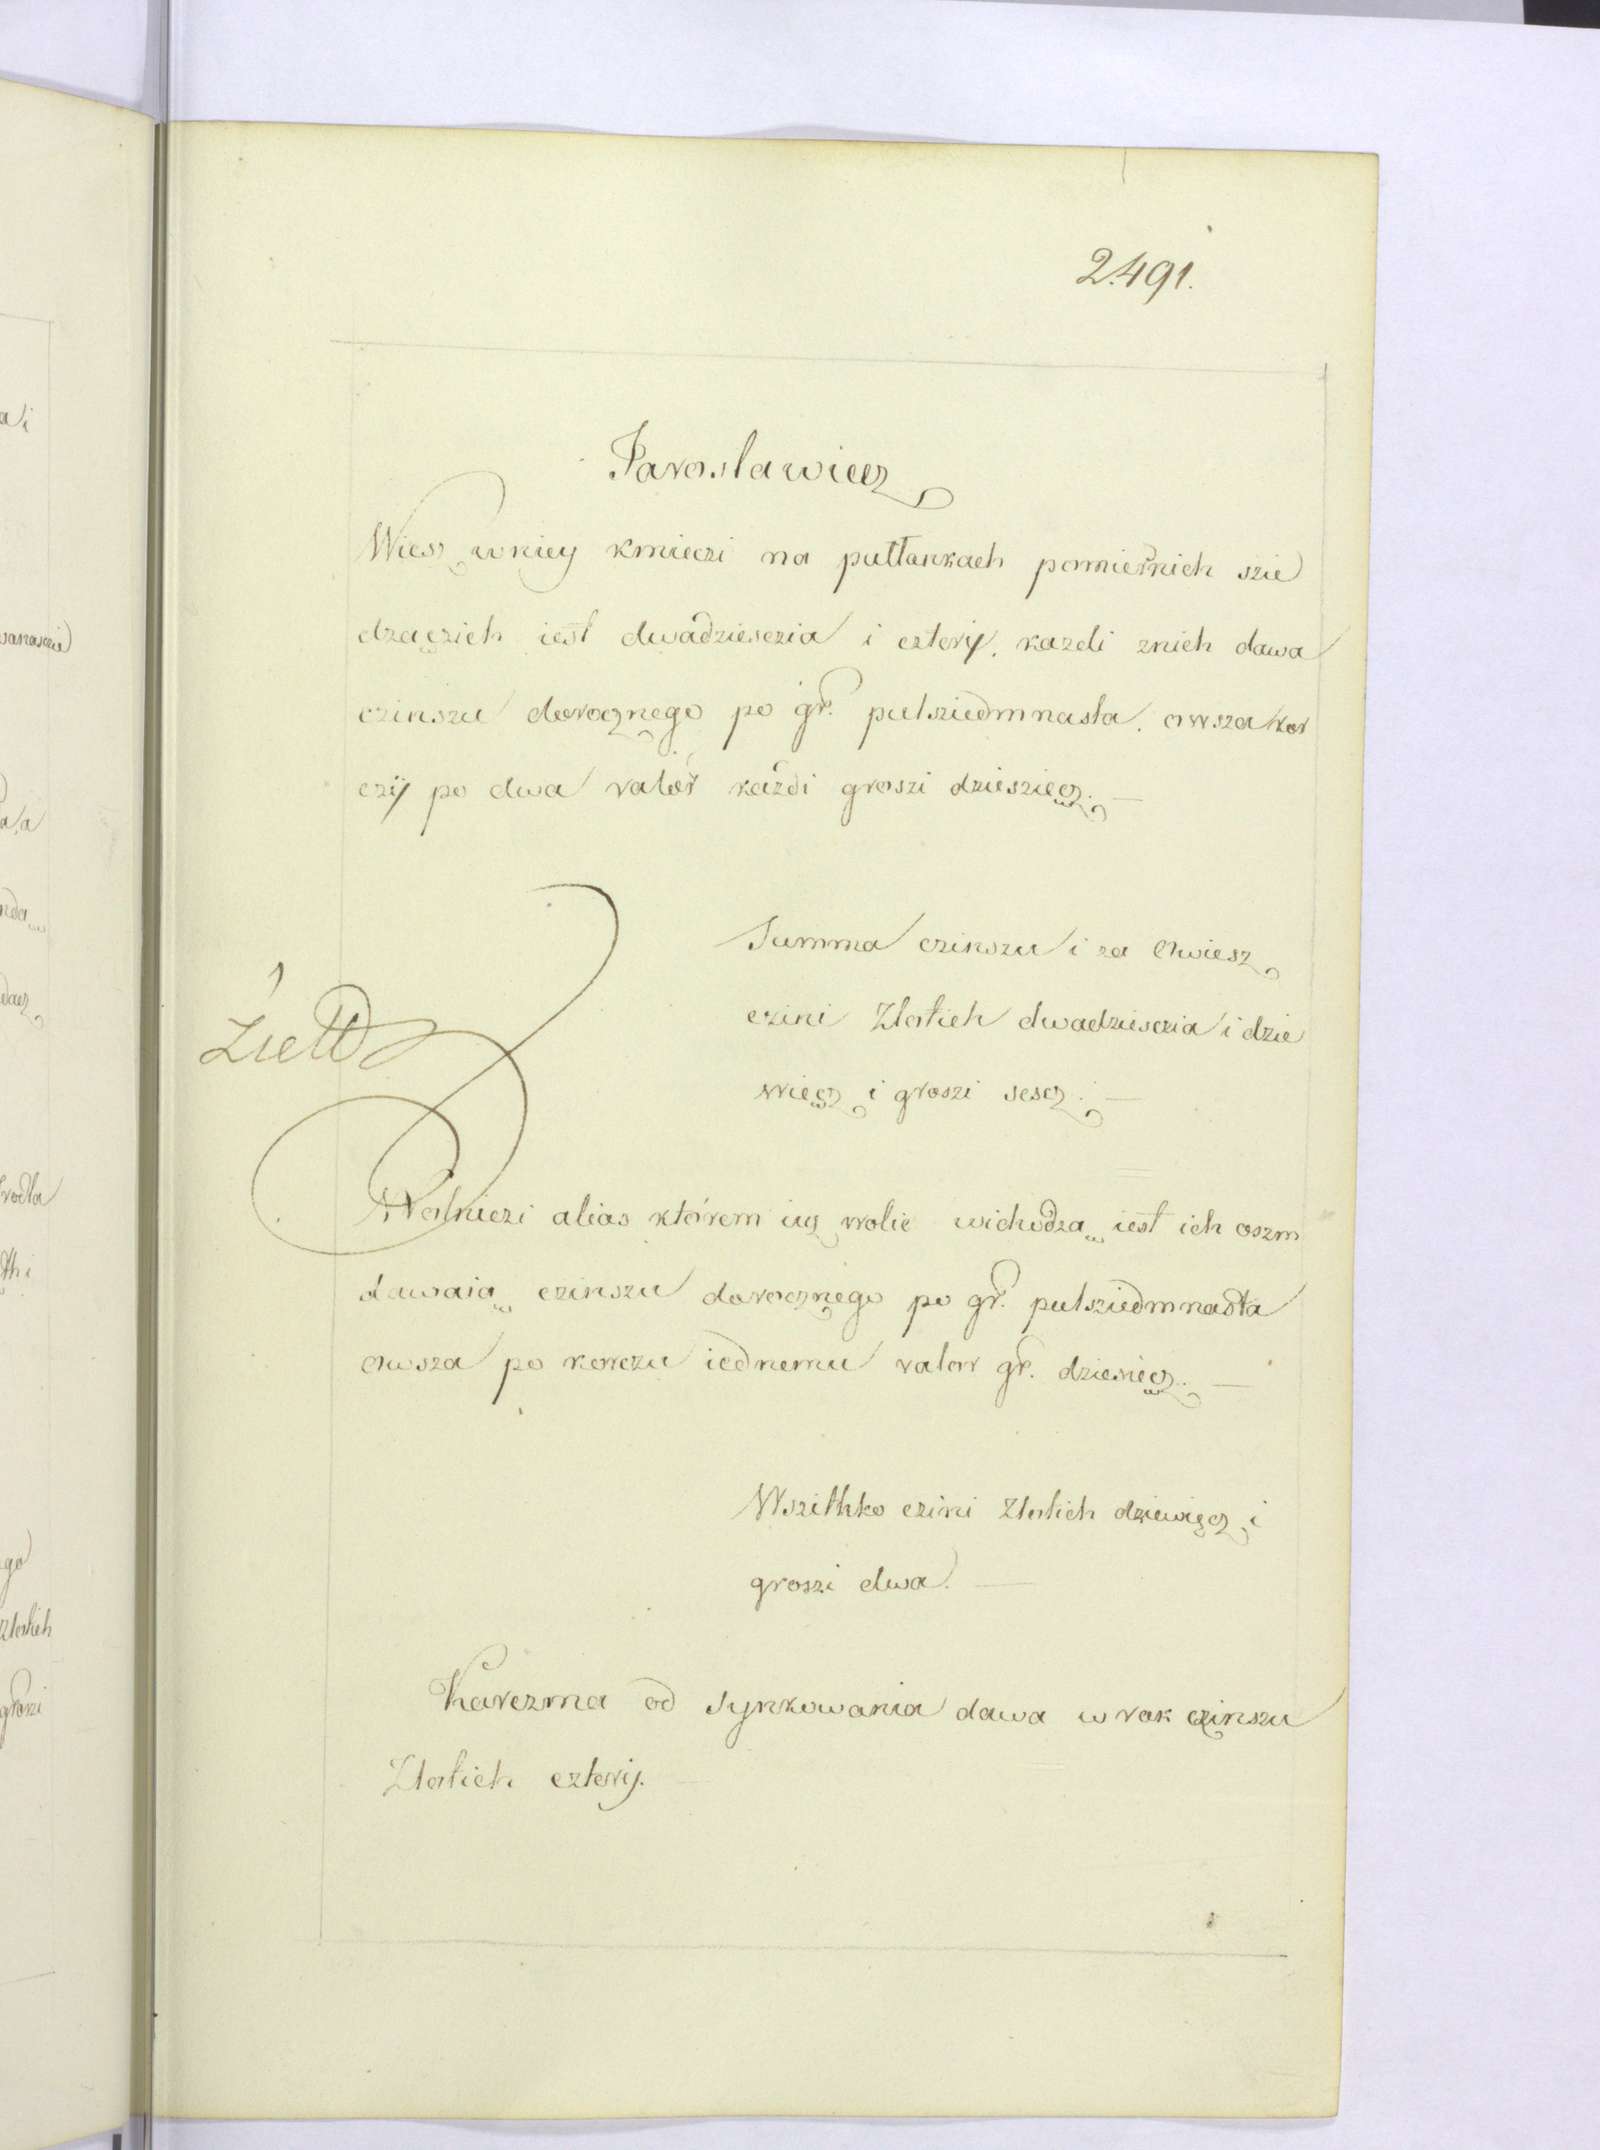 2.491.
Jaroslawiecz
Wiesz wniey kmieczi na puttankach pomiernich szie
dzączich iest dwadziesczia i cztery, kazdi znich dawa
czinszu dorocznego po gr. pulsziedmnasta. owsza kor
czÿ po dwa valor każdi groszi dziesziecz. —
Summa czinszu i za Owiesz
czini Zlotich dwadziesczia i dzie
więcz i groszi sescz. —
Wolniczi alias którem iusz wolie wichodzą iest ich oszm
dawaią czinszu dorocznego po gr. pulsziedmnasta
Owsza po korczu iednemu valor gr. dziesięcz. —
Wszithko czini Zlotich dziewięcz i
groszi dwa. —
Karczma od synkowania dawa w rok czinszu
Zlotich czterij. —
ai
nda
ego
Zlotich
groszi